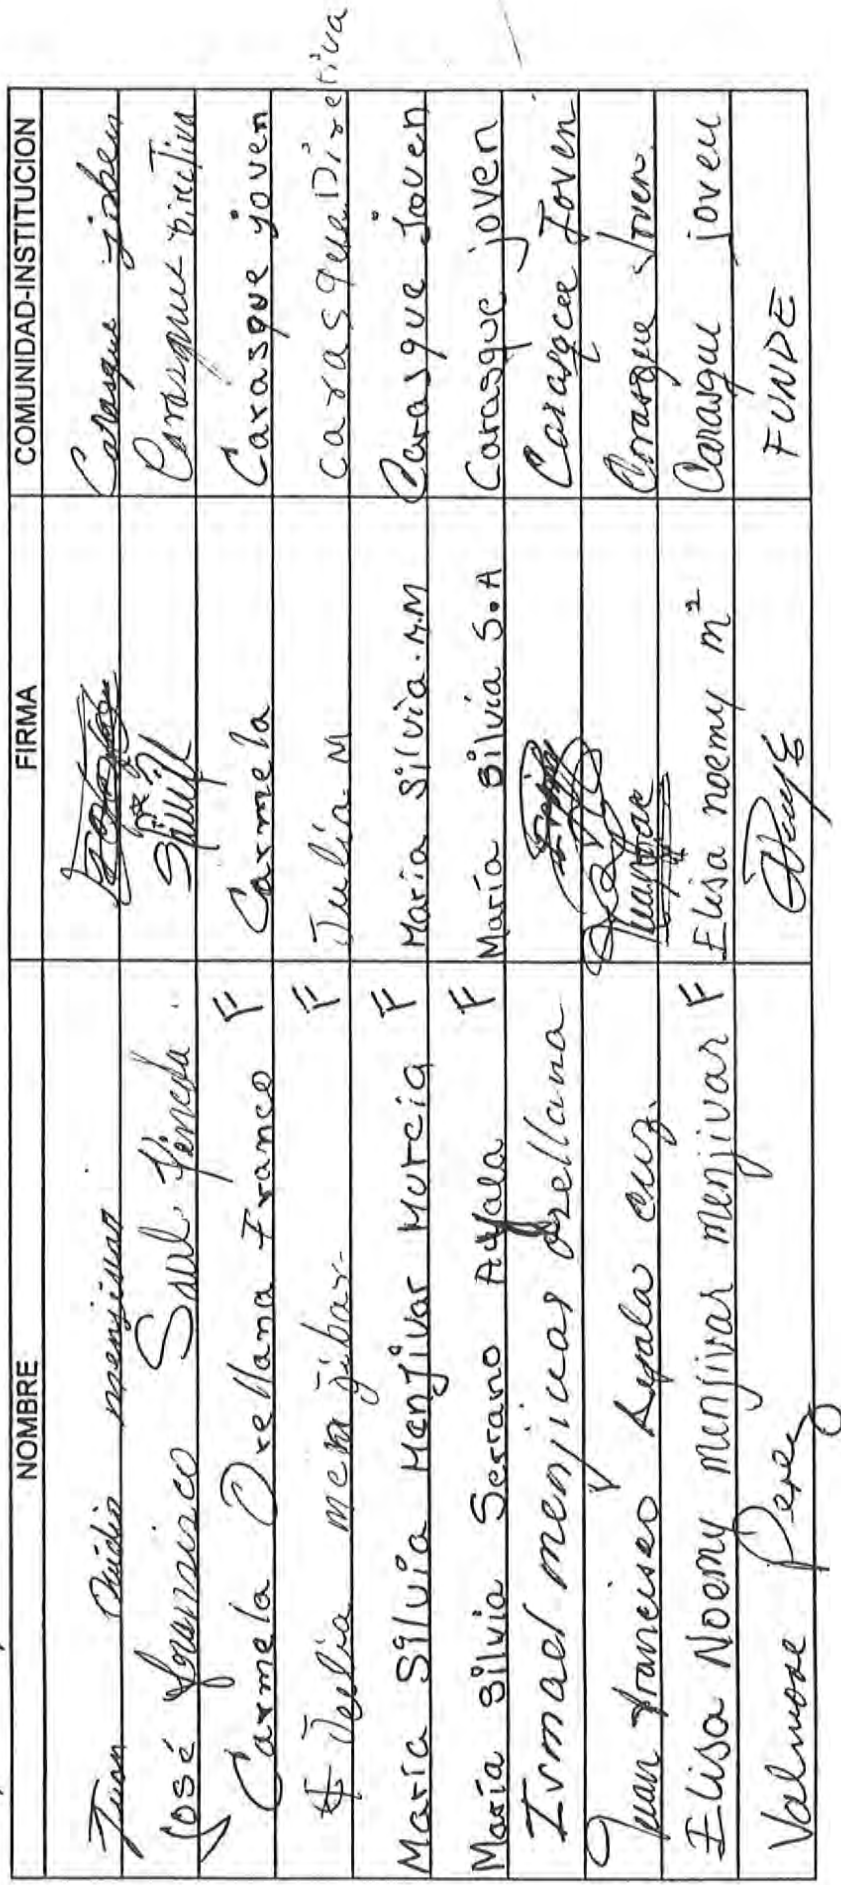 NOMBRE FIRMA COMUNIDAD-INSTITUCION
Juan Ovidio menjivar Carasque joben
José Francisco Saul Pineda Carasque Directiva
Carmela Orellana Franco F Carmela Carasque joven
Julia menjibar F Julia M Carasque Directiva
María Silvia Menjívar Murcia F María Silvia.M.M Carasque Joven
María Silvia Serrano Ayala F María Silvia S.A Carasque joven
Ismael menjivar orellana Carasque Joven
Juan francisco Ayala Cruz. Carasque Joven.
Elisa Noemy menjivar menjivar F Elisa noemy m² Carasque joven
Valmore Perez FUNDE